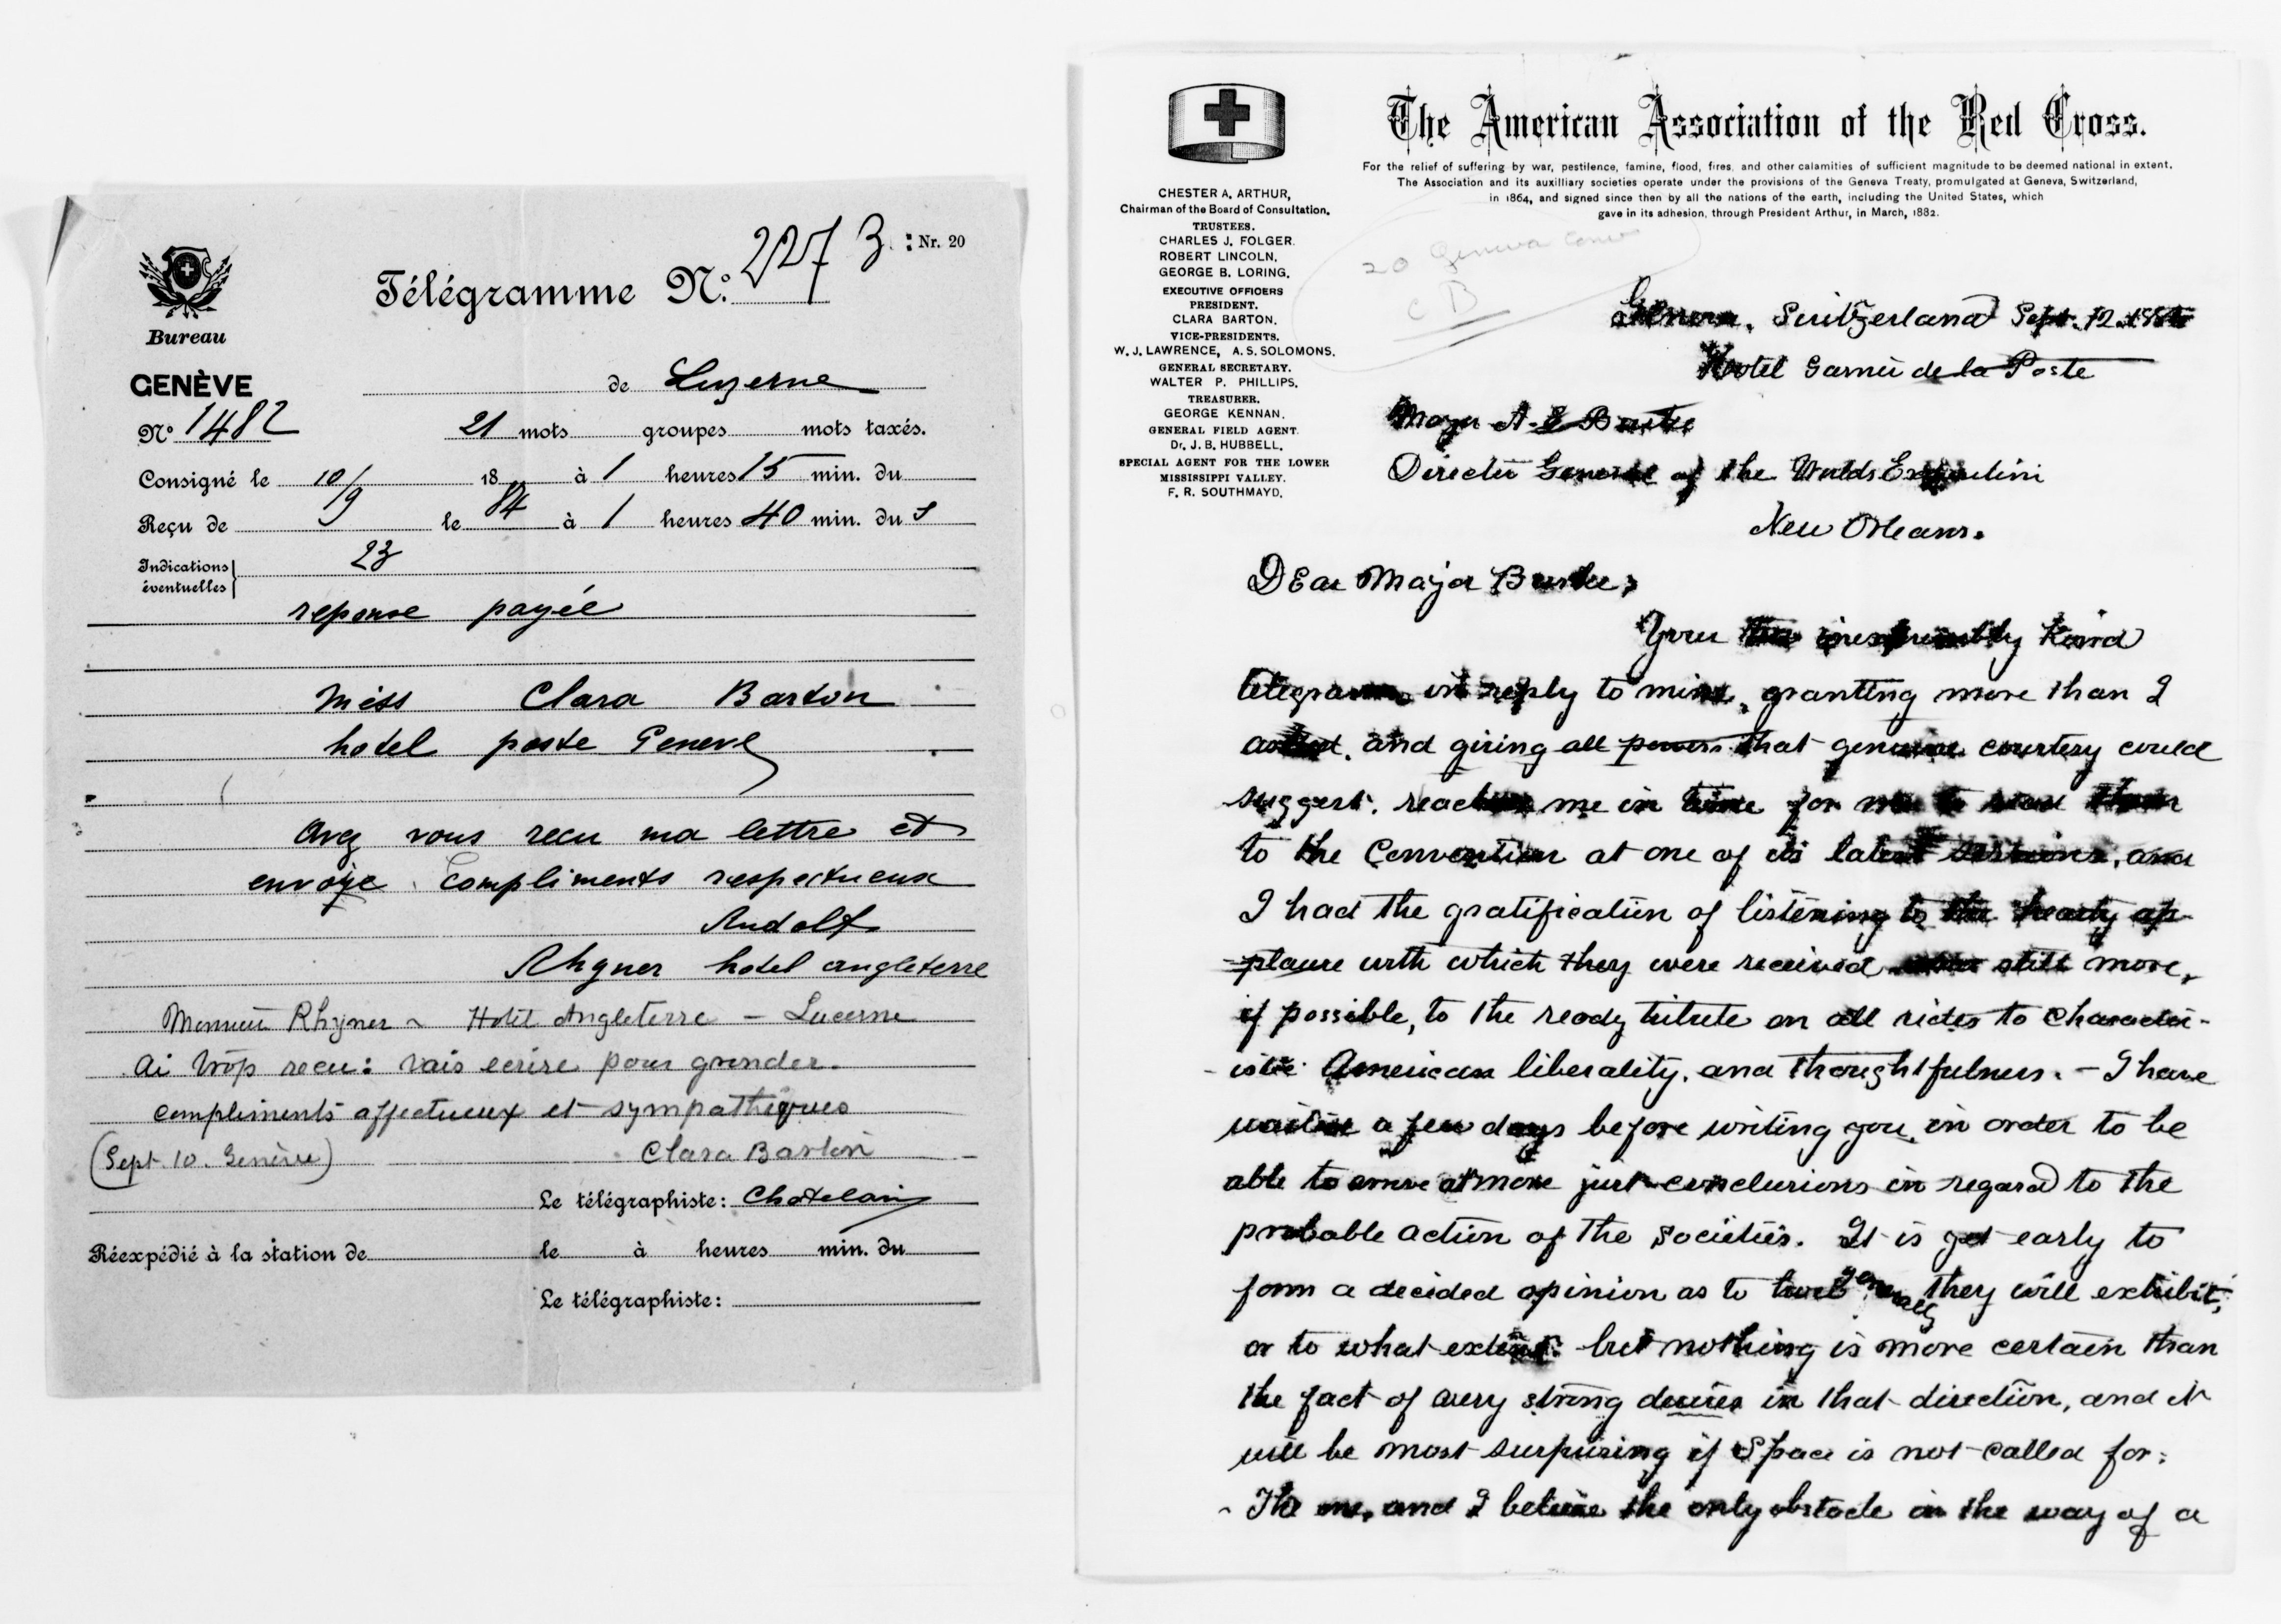 Télégramme No. 2273. : Nr. 20
Bureau
GENÈVE
de Luzerne
No 1482 21 mots groupes mots taxés.
Consigné le 10/9 18 84 à 1 heures 15 min. du
Reçu de le à 1 heures 40 min. du S
Indications éventuelles 23
reponse payée
Miss Clara Barton
hotel poste Geneve
Avez vous recu ma lettre et
envoye. Compliments respectueux
Rudolf
Rhyner hotel angleterre
Monsieur Rhyner ~ Hotel Angleterre – Lucerne
Ai trop recu: vais ecrire pour gronder.
compliments affectueux et sympathiques
(Sept. 10. Genève) Clara Barton
Le télégraphiste: Chatelain
Réexpédié à la station de le à heures min. du
Le télégraphiste:
The American Association of the Red Cross.
For the relief of suffering by war, pestilence, famine, flood, fires, and other calamities of sufficient magnitude to be deemed national in extent.
The Association and its auxilliary societies operate under the provisions of the Geneva Treaty, promulgated at Geneva, Switzerland,
in 1864, and signed since then by all the nations of the earth, including the United States, which
gave in its adhesion, through President Arthur, in March, 1882.
CHESTER A. ARTHUR,
Chairman of the Board of Consultation.
TRUSTEES.
CHARLES J. FOLGER.
ROBERT LINCOLN.
GEORGE B. LORING.
EXECUTIVE OFFICERS
PRESIDENT.
CLARA BARTON.
VICE-PRESIDENTS.
W. J. LAWRENCE, A. S. SOLOMONS.
GENERAL SECRETARY.
WALTER P. PHILLIPS.
TREASURER.
GEORGE KENNAN.
GENERAL FIELD AGENT.
Dr. J. B. HUBBELL.
SPECIAL AGENT FOR THE LOWER
MISSISSIPPI VALLEY.
F. R. SOUTHMAYD.
20 Geneva Conv
C B
Geneva, Switzerland Sept. 12. 1884
Hotel Garnie de la Poste
Major A. E Burke
Director General of the Worlds Exposition
New Orleans.
Dear Major Burke;
Your kind
telegram in reply to mine, granting more than I
asked, and giving all powers that genuine courtesy could
suggest, reached me in time for me to read them
to the Convention at one of its latest sessions, and
I had the gratification of listening to the hearty ap-
plause with which they were received still more,
if possible, to the ready tribute on all sides to character-
istic American liberality, and thoughtfulness. – I have
waited a few days before writing you, in order to be
able to arrive at more just conclusions in regard to the
probable action of the societies. It is yet early to
form a decided opinion as to how generally they will exhibit,
or to what extent: but nothing is more certain than
the fact of very strong desires in that direction, and it
will be most surprising if Space is not called for:
- The one, and I believe the only obstacle in the way of a